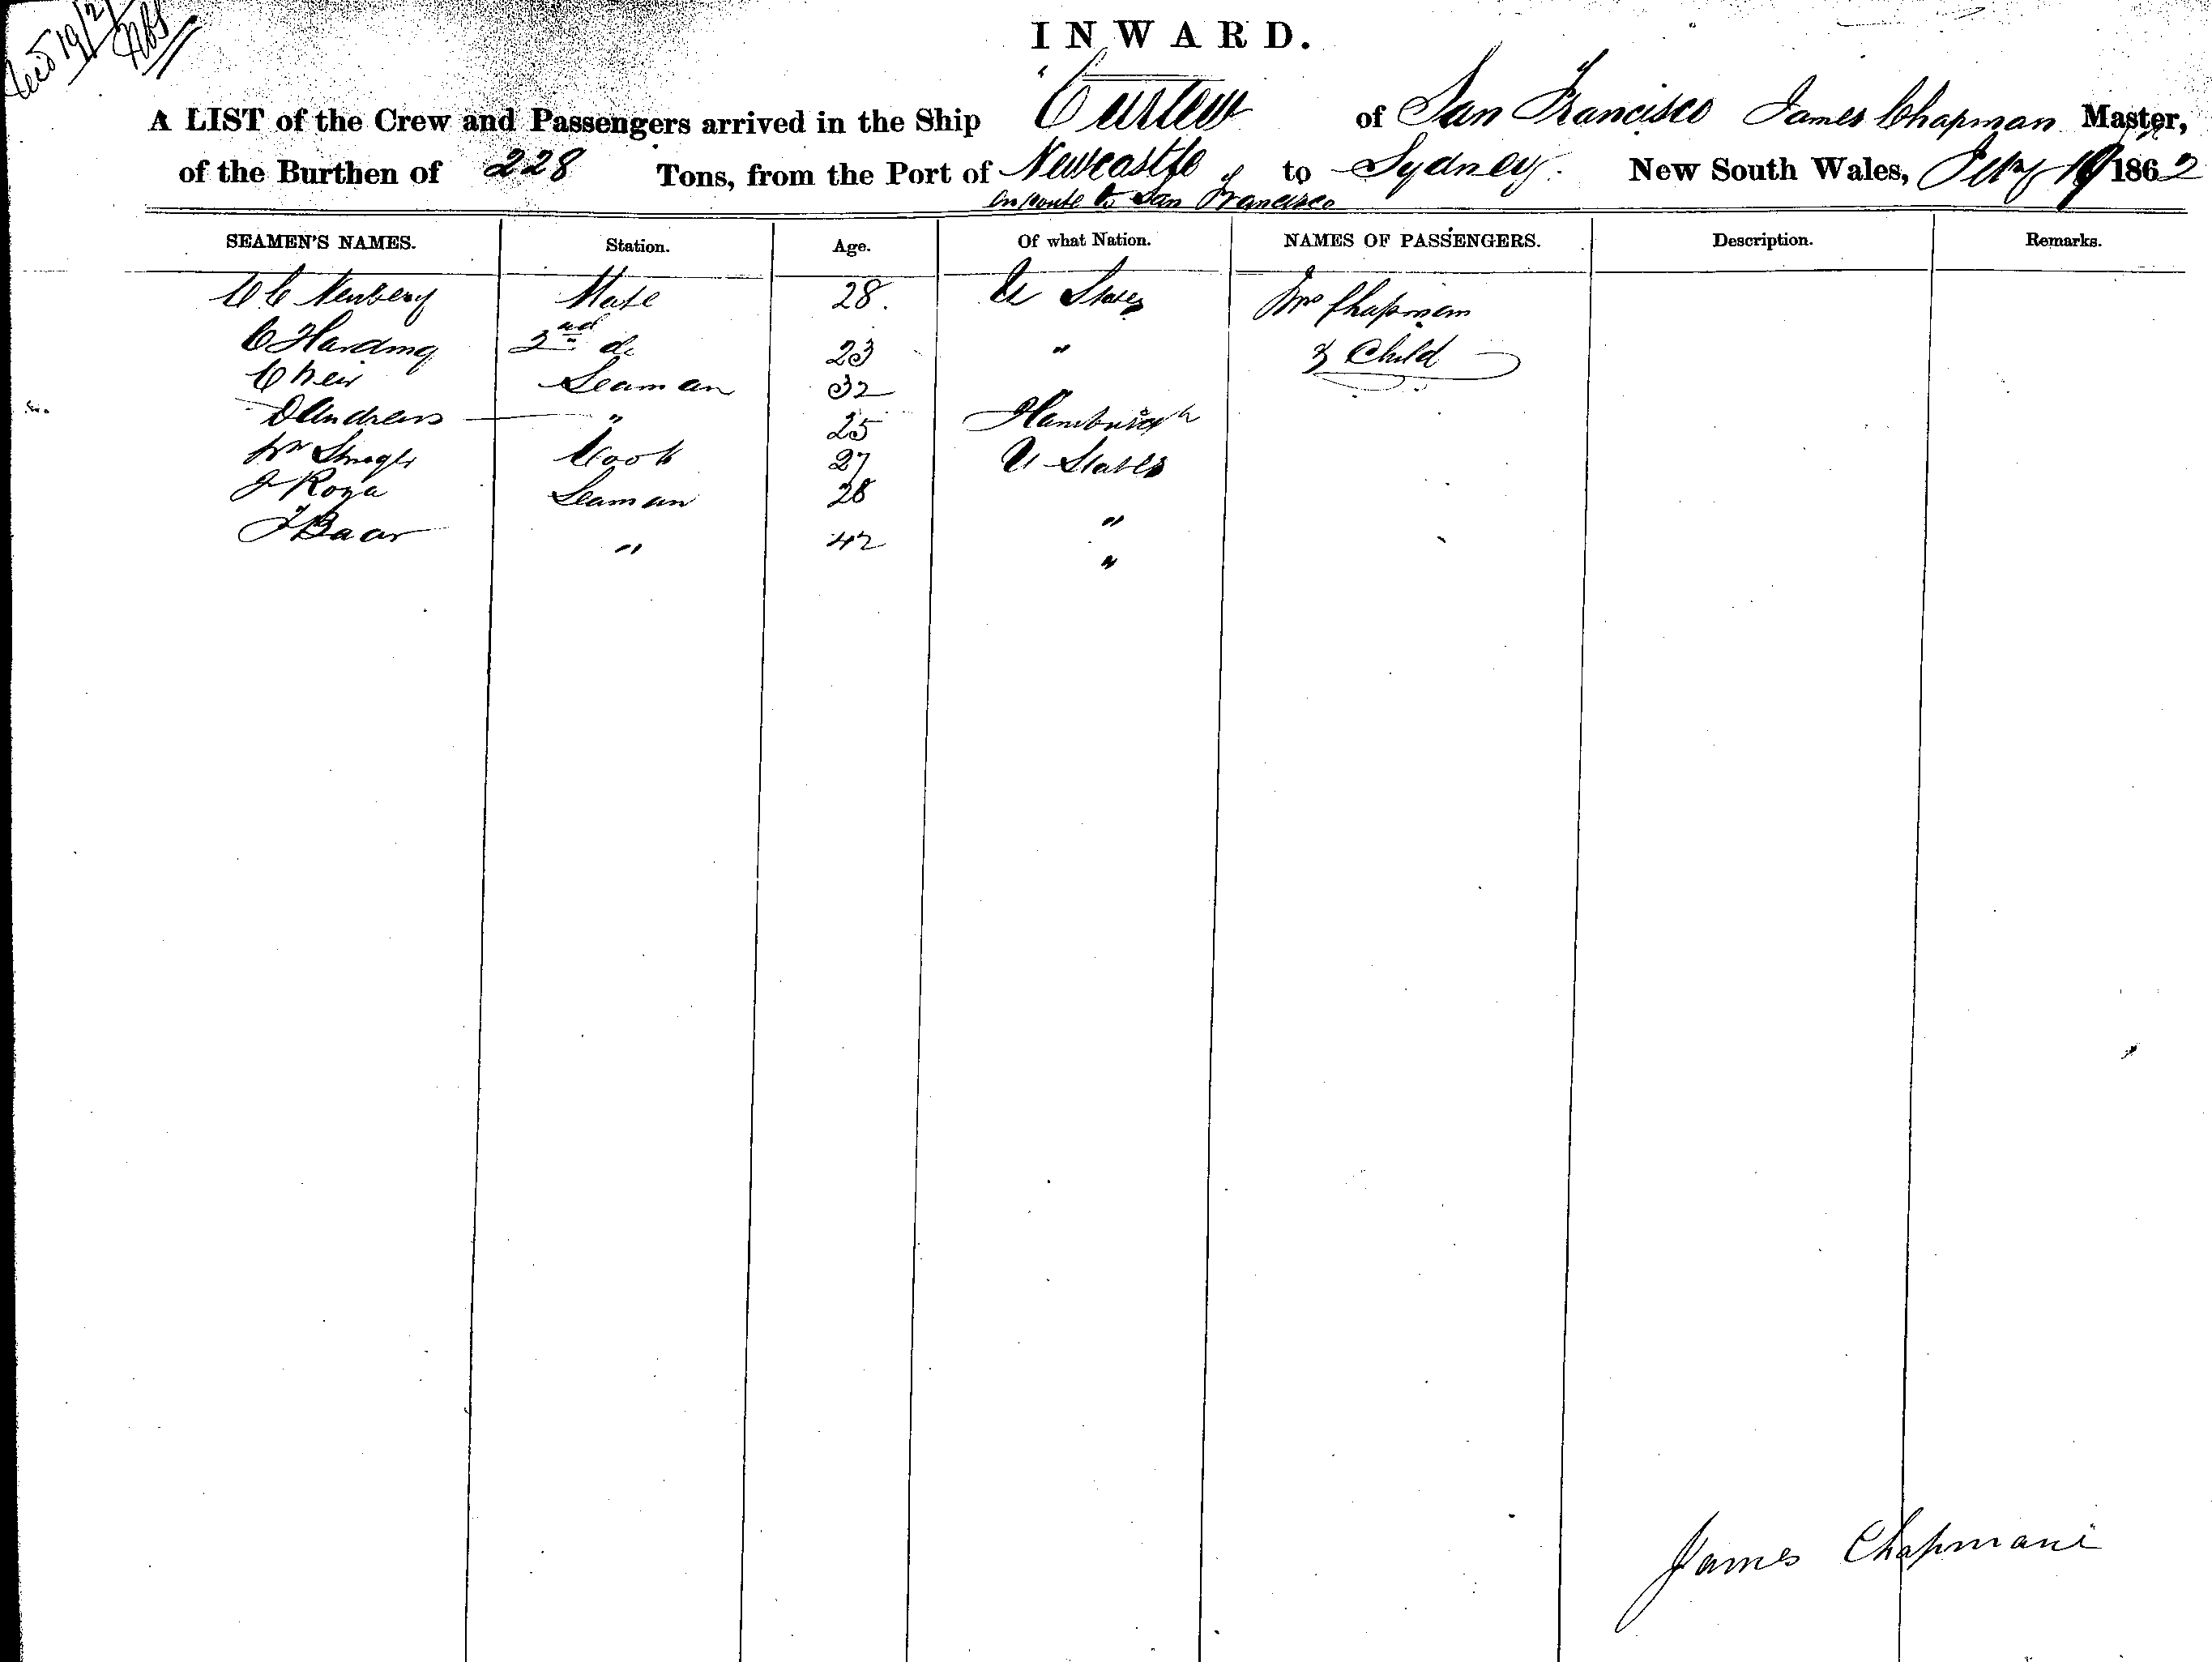 19/2/
INWARD.
A LIST of the Crew and Passengers arrived in the Ship "Curlew of San Francisco James Chapman Master,
of the Burthen of 228 Tons, from the Port of Newcastle to Sydney. New South Wales, Feby 19 1862
en route to San Francisco
SEAMEN'S NAMES. Station. Age. Of what Nation. NAMES OF PASSENGERS. Description. Remarks.
C C Newbery Mate 28. U States Mrs Chapman
C Harding 2nd do 23 " & Child
C Weir Seaman 32
D Andrews " 25 Hamburgh
Wm Cook 27 U States
J Roza Seaman 28 "
J Baar " 42 "
James Chapman